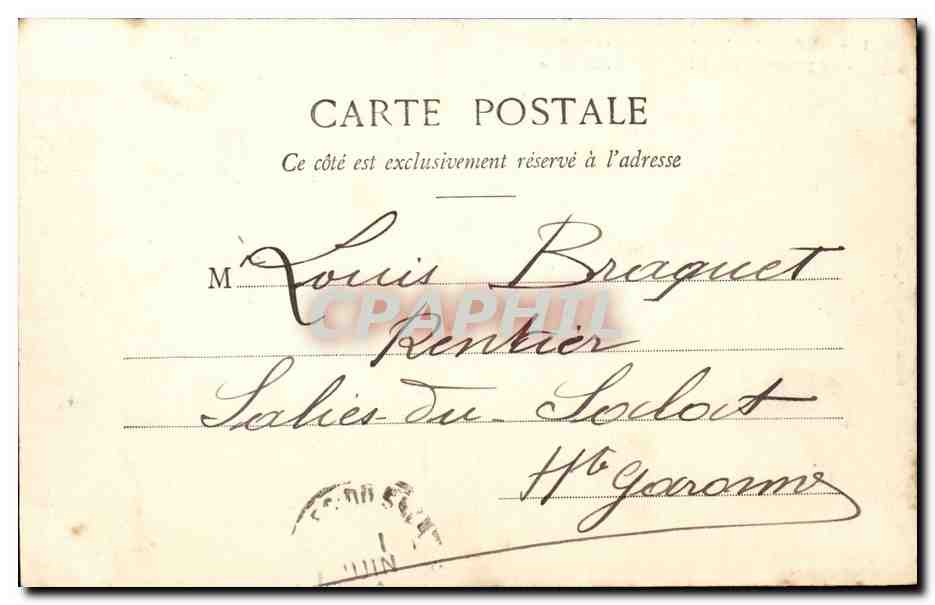 CARTE POSTALE
Ce côté est exclusivement réservé à l'adresse
Mr Louis Braquet
CPAPHIL
Rentier
Salies-du-Salat
Hte Garonne
1
JUIN